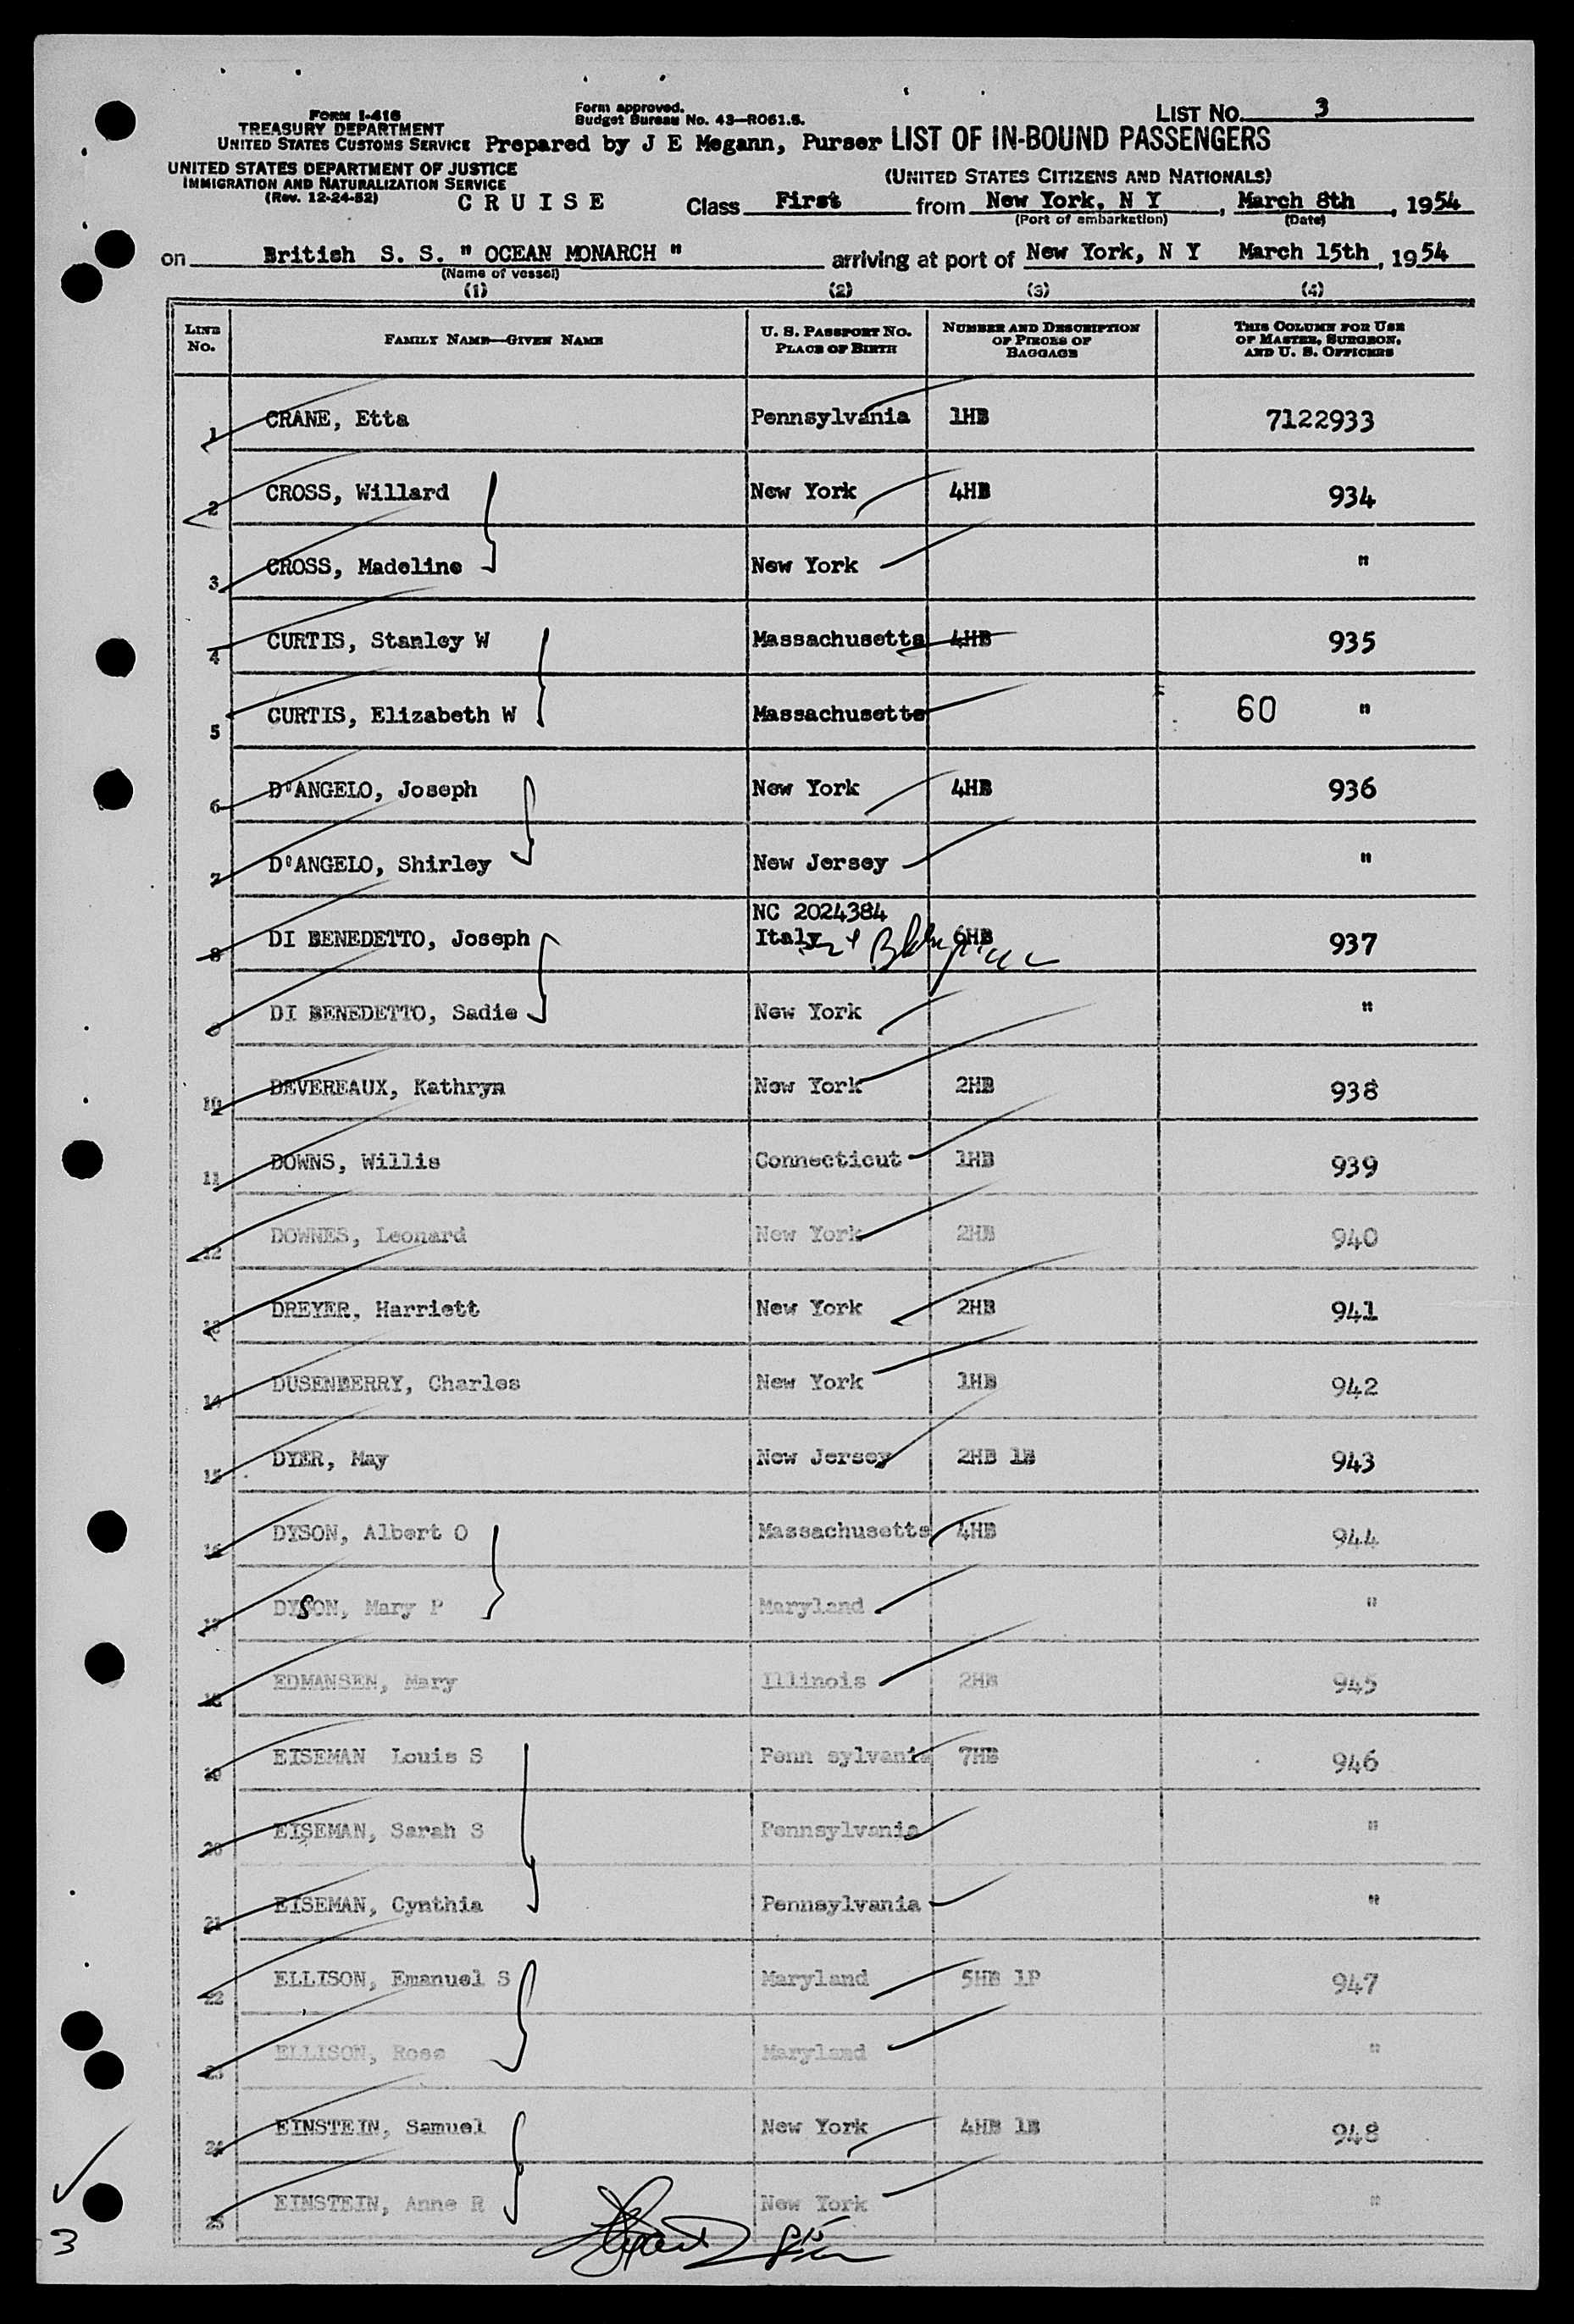 LIST No. 3
FORM I-416
TREASURY DEPARTMENT
UNITED STATES CUSTOMS SERVICE
Form approved.
Budget Bureau No. 43—RO61.5.
Prepared by J E Megann, Purser LIST OF IN-BOUND PASSENGERS
UNITED STATES DEPARTMENT OF JUSTICE
IMMIGRATION AND NATURALIZATION SERVICE
(Rev. 12-24-52)
(UNITED STATES CITIZENS AND NATIONALS)
C R U I S E Class First from New York, N Y, March 8th, 1954
(Port of embarkation) (Date)
on British S. S. " OCEAN MONARCH " arriving at port of New York, N Y March 15th, 1954
(Name of vessel)
(1) (2) (3) (4)
LINE No. FAMILY NAME—GIVEN NAME U. S. PASSPORT No. PLACE OF BIRTH NUMBER AND DESCRIPTION OF PIECES OF BAGGAGE THIS COLUMN FOR USE OF MASTER, SURGEON, AND U. S. OFFICERS
1 CRANE, Etta Pennsylvania 1HB 7122933
2 CROSS, Willard New York 4HB 934
3 CROSS, Madeline New York "
4 CURTIS, Stanley W Massachusetts 4HB 935
5 CURTIS, Elizabeth W Massachusetts 60 "
6 D'ANGELO, Joseph New York 4HB 936
7 D'ANGELO, Shirley New Jersey "
NC 2024384
8 DI BENEDETTO, Joseph Italy 6HB 937
9 DI BENEDETTO, Sadie New York "
10 DEVEREAUX, Kathryn New York 2HB 938
11 DOWNS, Willis Connecticut 1HB 939
12 DOWNES, Leonard New York 2HB 940
13 DREYER, Harriett New York 2HB 941
14 DUSENBERRY, Charles New York 1HB 942
15 DYER, May New Jersey 2HB 1B 943
16 DYSON, Albert O Massachusetts 4HB 944
17 DYSON, Mary P Maryland "
18 EDMANSEN, Mary Illinois 2HB 945
19 EISEMAN Louis S Penn sylvania 7HB 946
20 EISEMAN, Sarah S Pennsylvania "
21 EISEMAN, Cynthia Pennsylvania "
22 ELLISON, Emanuel S Maryland 5HB 1P 947
23 ELLISON, Rose Maryland "
24 EINSTEIN, Samuel New York 4HB 1B 948
25 EINSTEIN, Anne R New York "
3